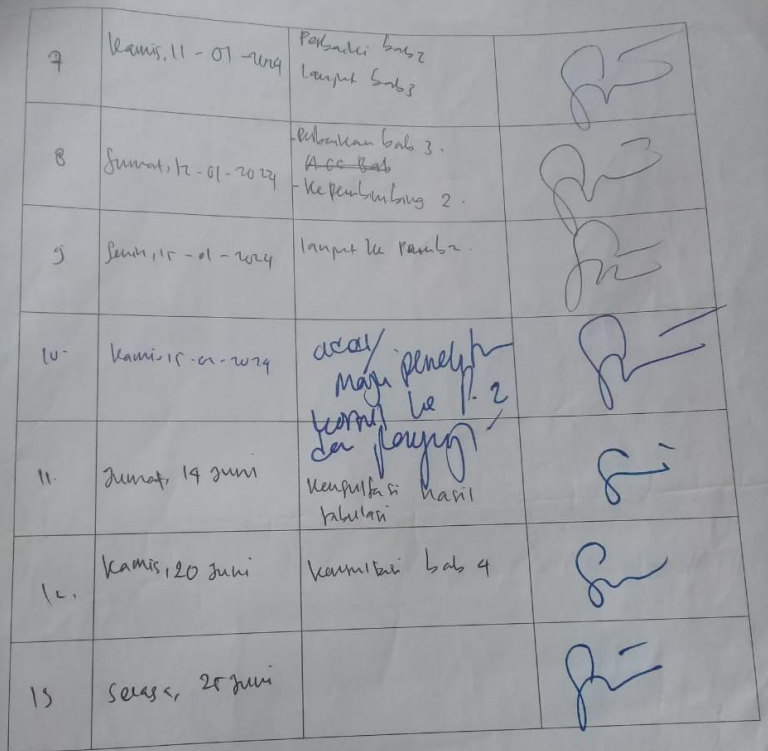 7 Kamis, 11 - 01 - 2024 Perbaiki bab 2
lanjut bab 3
8 Jumat, 12 - 01 - 2024 - Perbaikan bab 3.
Acc Bab
- Ke pembimbing 2.
9 Senin, 15 - 01 - 2024 lanjut ke pemb 2
10. Kamis, 15 - - 2024 acc
Maju
ke p. 2
11. Jumat, 14 Juni Konsultasi hasil
tabulasi
12. Kamis, 20 Juni Konsultasi bab 4
13 Selasa, 25 Juni